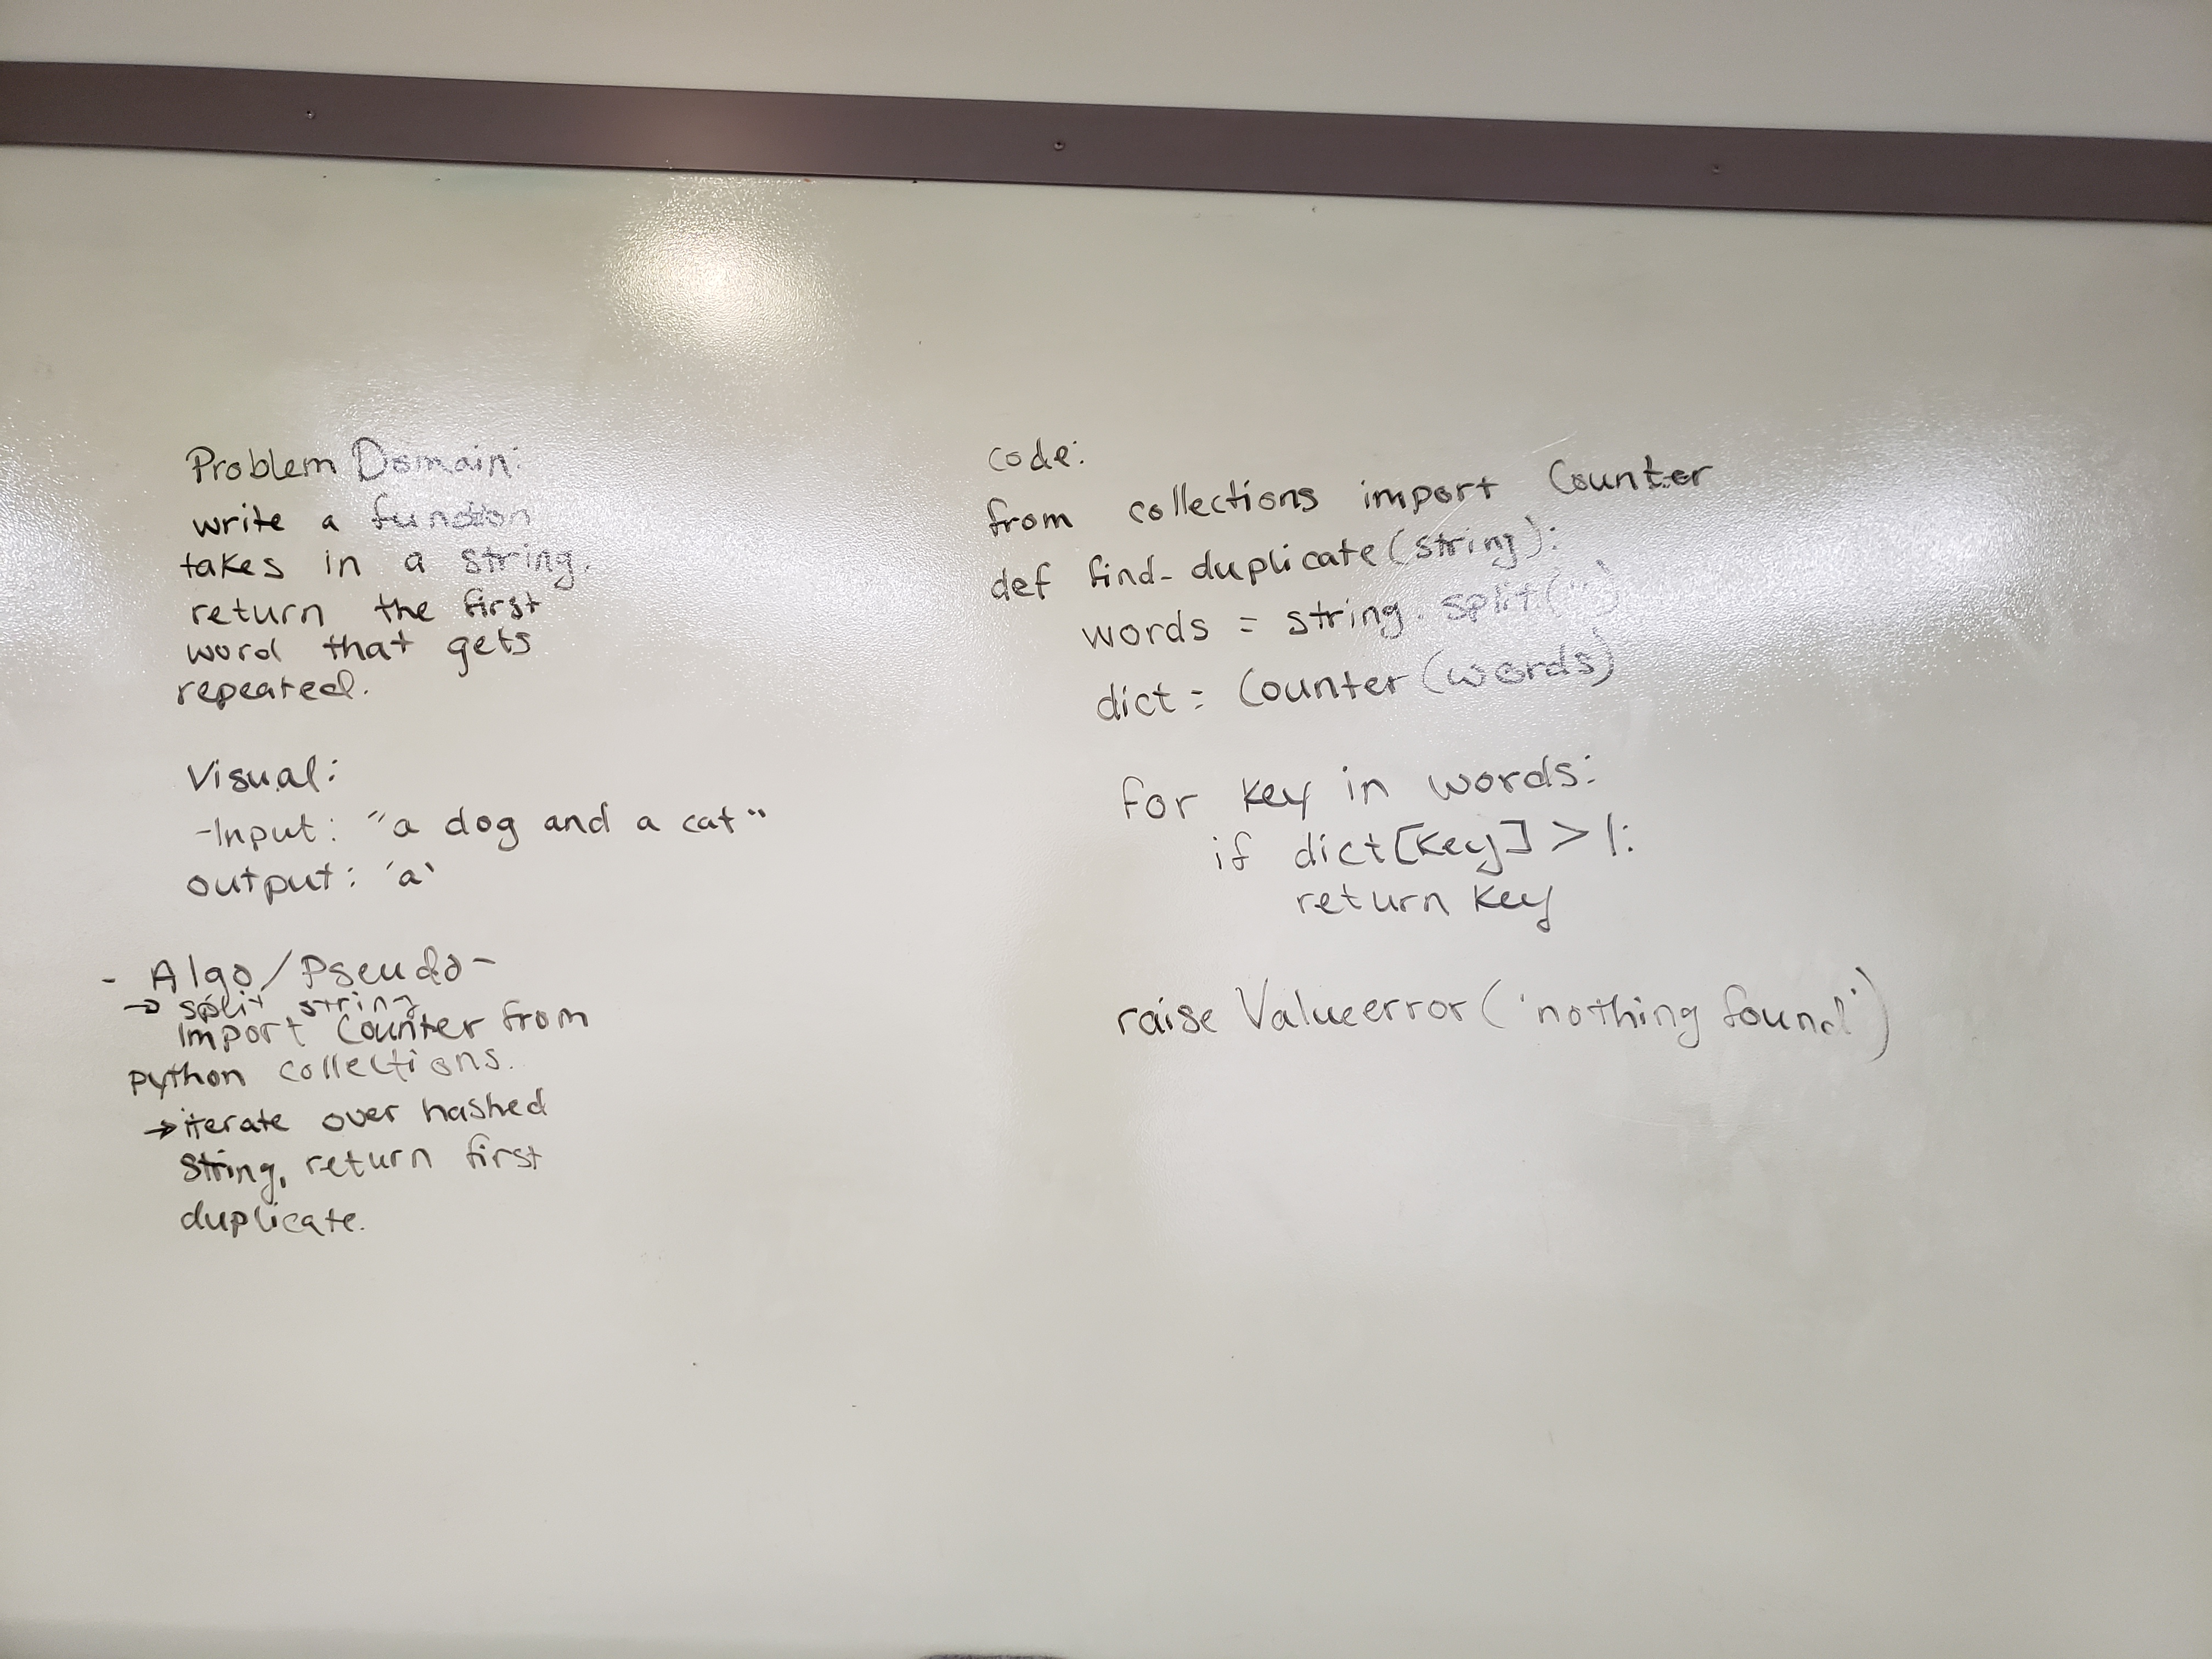 Problem Domain:
write a function
takes in a string.
return the first
word that gets
repeated.
Visual:
-Input: "a dog and a cat"
output: 'a'
- Algo/Pseudo-
→ split string
import Counter from
python collections.
→ iterate over hashed
string, return first
duplicate.
code:
from collections import Counter
def find_duplicate(string):
words = string.split(" ")
dict = Counter(words)
for key in words:
if dict[key] > 1:
return key
raise Valueerror('nothing found')